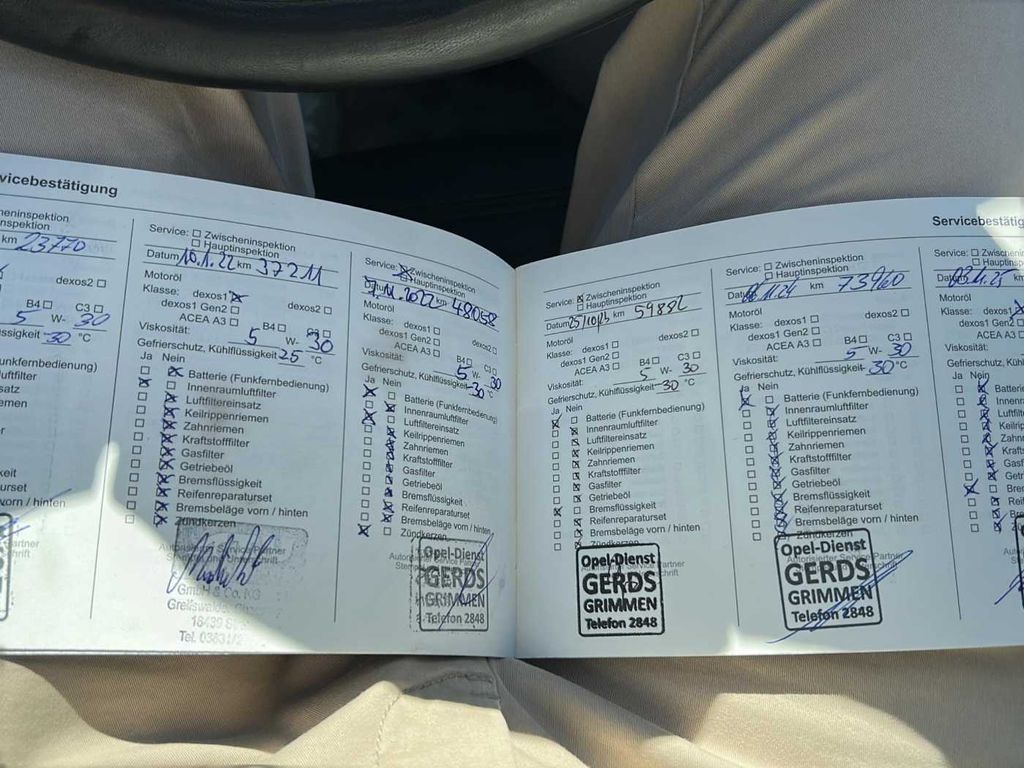 vicebestätigung
neninspektion
nspektion
km 23770
dexos2
B4 C3
5 W- 30
ssigkeit -30 °C
unkfernbedienung)
uftfilter
satz
emen
r
keit
rset
vorn / hinten
Service: Zwischeninspektion
Hauptinspektion
Datum 10.1.22 km 37211
Motoröl
Klasse: dexos1 dexos2
dexos1 Gen2
ACEA A3 B4 C3
Viskosität: 5 W- 30
Gefrierschutz, Kühlflüssigkeit 25 °C
Ja Nein
Batterie (Funkfernbedienung)
Innenraumluftfilter
Luftfiltereinsatz
Keilrippenriemen
Zahnriemen
Kraftstofffilter
Gasfilter
Getriebeöl
Bremsflüssigkeit
Reifenreparaturset
Bremsbeläge vorn / hinten
Zündkerzen
GmbH & Co. KG
Tel. 03831/2
Service: Zwischeninspektion
Hauptinspektion
Datum 11.2022 km 48058
Motoröl
Klasse: dexos1 dexos2
dexos1 Gen2
ACEA A3 B4 C3
Viskosität: 5 W- 30
Gefrierschutz, Kühlflüssigkeit -30 °C
Ja Nein
Batterie (Funkfernbedienung)
Innenraumluftfilter
Luftfiltereinsatz
Keilrippenriemen
Zahnriemen
Kraftstofffilter
Gasfilter
Getriebeöl
Bremsflüssigkeit
Reifenreparaturset
Bremsbeläge vorn / hinten
Zündkerzen
Opel-Dienst
GERDS
GRIMMEN
Telefon 2848
Service: Zwischeninspektion
Hauptinspektion
Datum 25/10/23 km
Motoröl
Klasse: dexos1 dexos2
dexos1 Gen2
ACEA A3 B4 C3
Viskosität: 5 W- 30
Gefrierschutz, Kühlflüssigkeit -30 °C
Ja Nein
Batterie (Funkfernbedienung)
Innenraumluftfilter
Luftfiltereinsatz
Keilrippenriemen
Zahnriemen
Kraftstofffilter
Gasfilter
Getriebeöl
Bremsflüssigkeit
Reifenreparaturset
Bremsbeläge vorn / hinten
Zündkerzen
Opel-Dienst
GERDS
GRIMMEN
Telefon 2848
Service: Zwischeninspektion
Hauptinspektion
Datum 11.24 km 73960
Motoröl
Klasse: dexos1 dexos2
dexos1 Gen2
ACEA A3 B4 C3
Viskosität: 5 W- 30
Gefrierschutz, Kühlflüssigkeit -30 °C
Ja Nein
Batterie (Funkfernbedienung)
Innenraumluftfilter
Luftfiltereinsatz
Keilrippenriemen
Zahnriemen
Kraftstofffilter
Gasfilter
Getriebeöl
Bremsflüssigkeit
Reifenreparaturset
Bremsbeläge vorn / hinten
Zündkerzen
Autorisierter Service Partner
Opel-Dienst
GERDS
GRIMMEN
Telefon 2848
Servicebestätig
Service: Zwischenins
Hauptinsp
Datum 11.25 km
Motoröl
Klasse: dexos1
dexos1 G
ACEA A
Viskosität:
Gefrierschutz, Kühlflü
Ja Nein
Batterie
Innenra
Luftfilte
Keilrip
Zahnri
Krafts
Gasfi
Getri
Bre
Rei
Br
Z